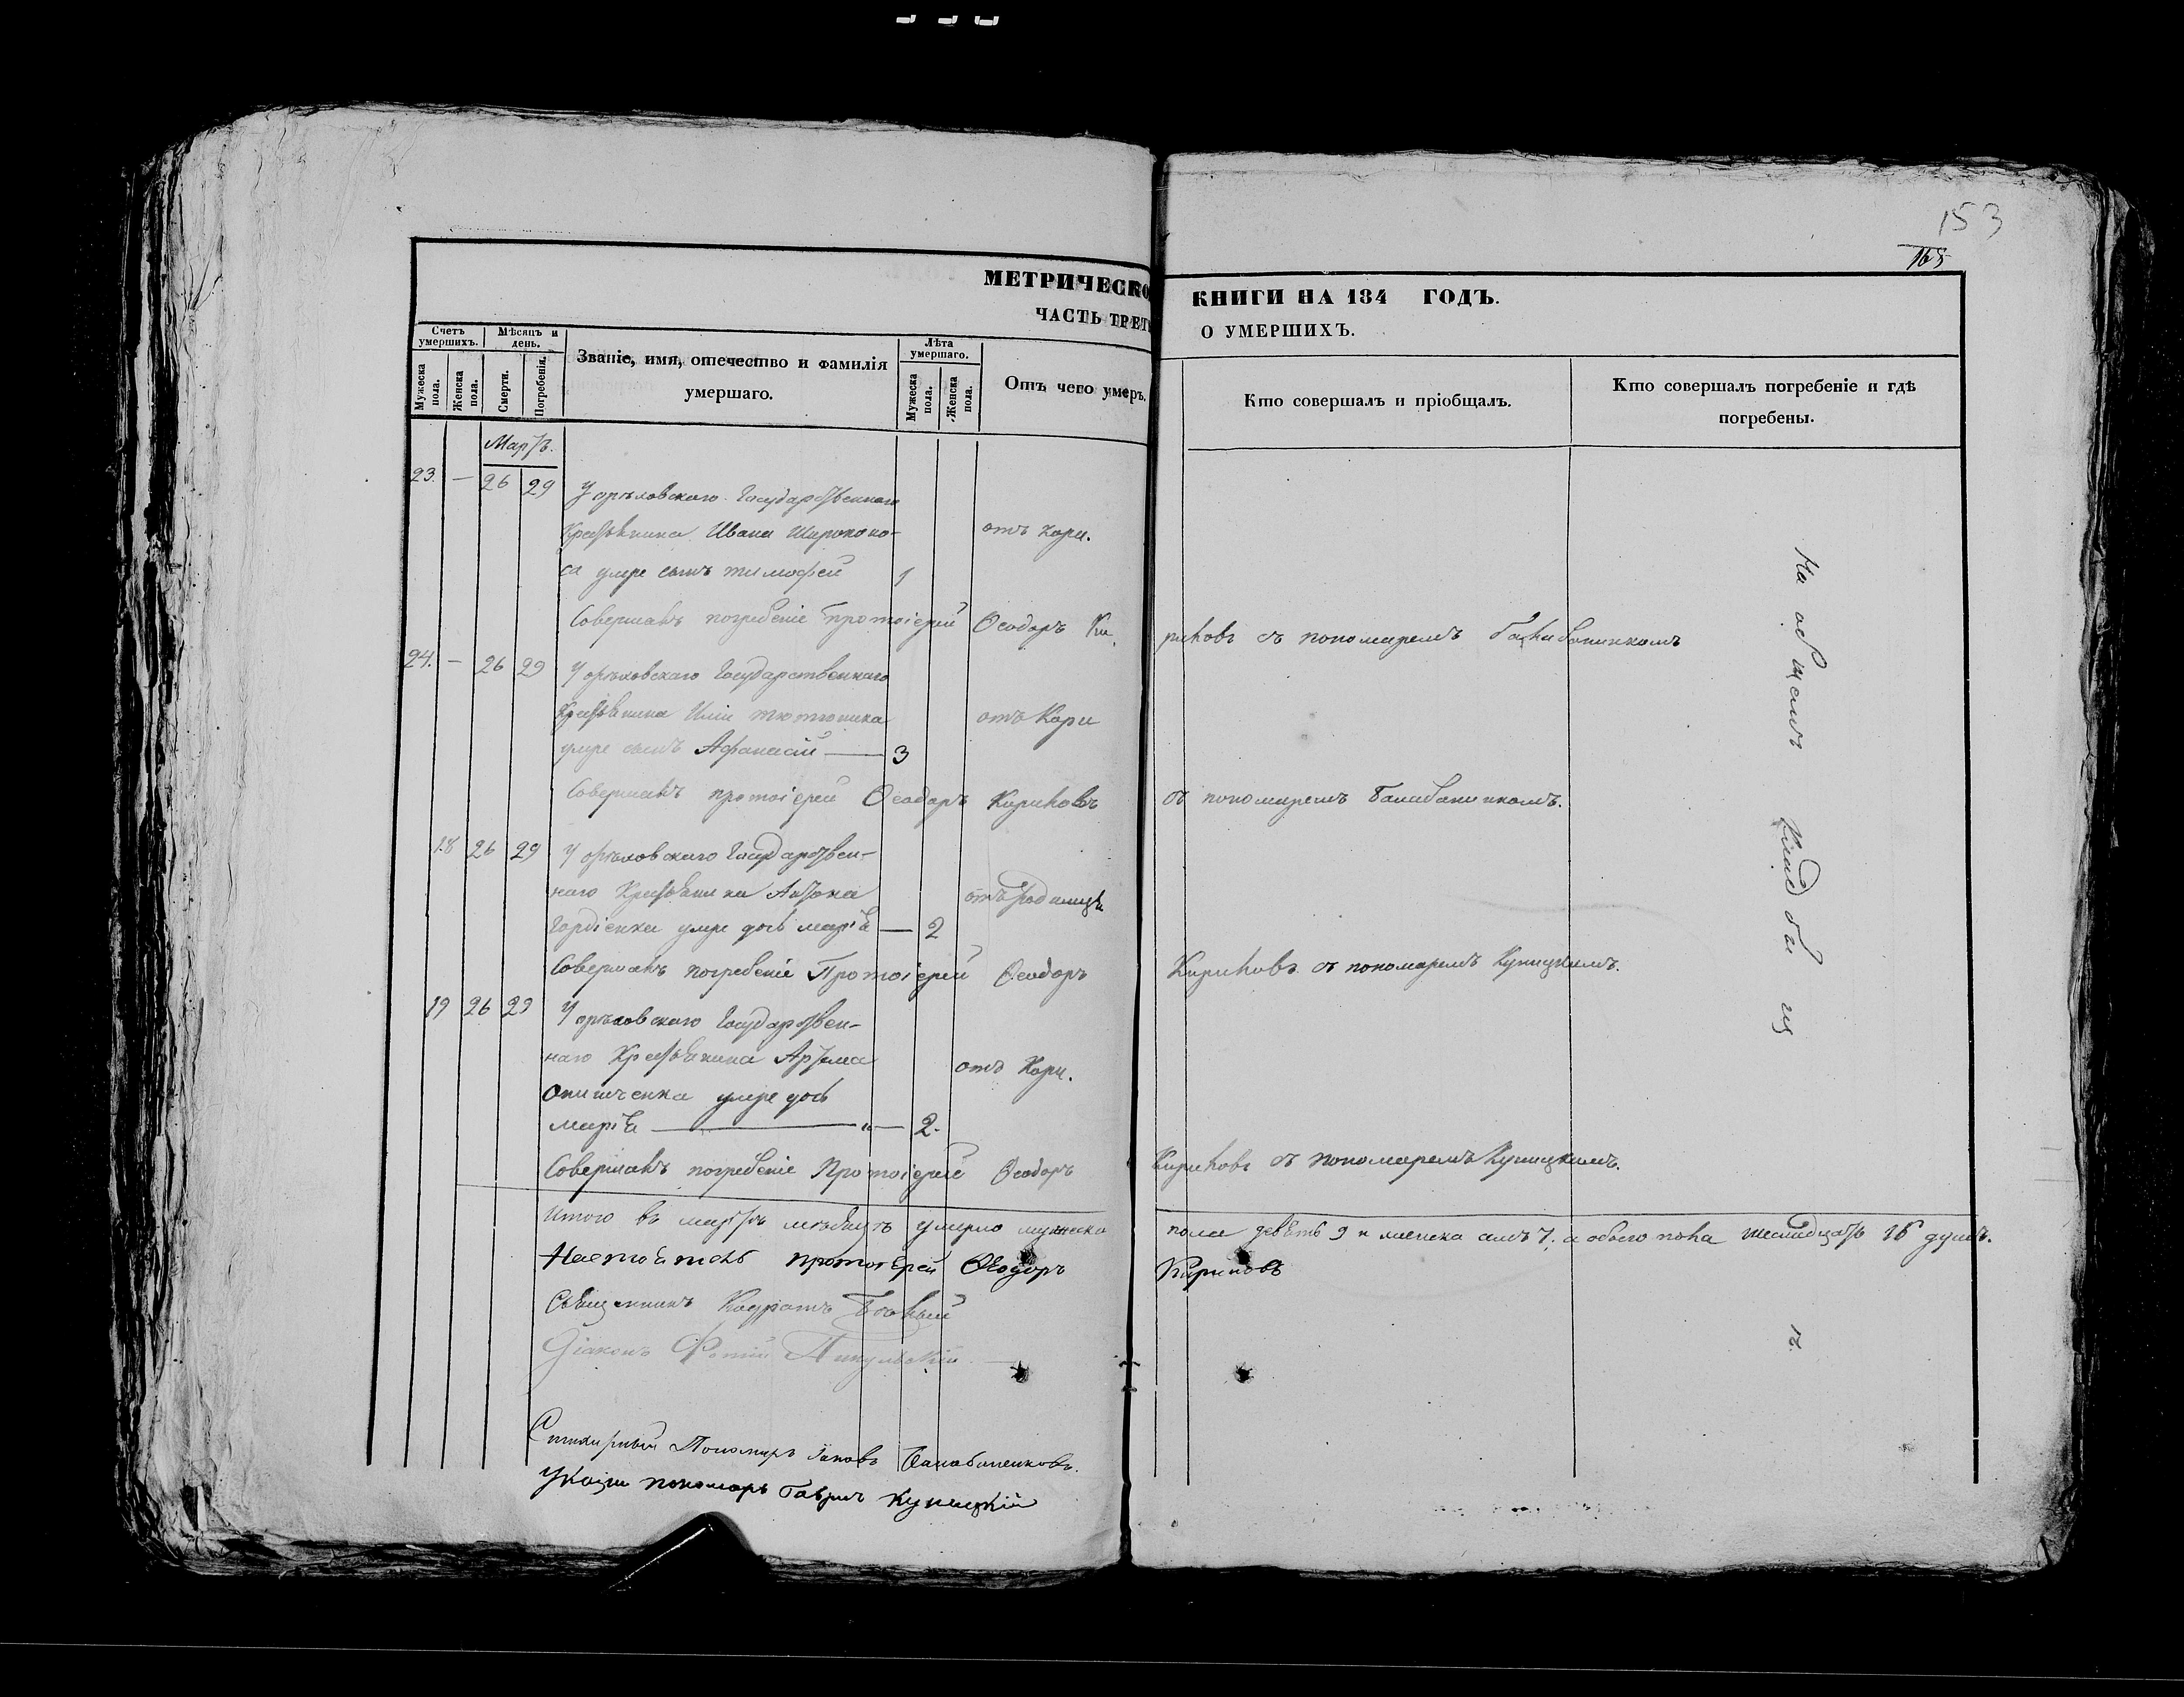 153
165
МЕТРИЧЕСКО КНИГИ НА 184 ГОДЪ.
ЧАСТЬ ТРЕТ О УМЕРШИХЪ.
Счетъ умершихъ.
Мѣсяцъ и день.
Званіе, имя, отечество и фамилія умершаго.
Лѣта умершаго.
Отъ чего умеръ.
Кто совершалъ и пріобщалъ.
Кто совершалъ погребеніе и гдѣ погребены.
Мужеска пола.
Женска пола.
Смерти.
Погребенія.
Мужеска пола.
Женска пола.
Мартъ.
23. — 26 29 У орѣховскаго Государственнаго
Крестьянина Ивана Широконо- отъ кори.
са умре сынъ тимофей 1
Совершалъ погребеніе протоіерей Ѳеодоръ Ки риковъ съ пономаремъ
24. — 26 29 У орѣховскаго Государственнаго
Крестьянина Иліи тютюника отъ Кори
умре сынъ Афанасій — 3
Совершалъ протоіерей Ѳеодоръ Кириковъ съ пономаремъ
18 26 29 У орѣховскаго Государствен-
наго Крестьянина Антона отъ родимца
Гордіенка умре дочь марія — 2
Совершалъ погребеніе Протоіерей Ѳеодоръ Кириковъ съ пономаремъ Куницкимъ.
19 26 29 У орѣховскаго Государствен-
наго Крестьянина Артема отъ Кори.
умре дочь
марія — „ — 2.
Совершалъ погребеніе Протоіерей Ѳеодоръ Кириковъ съ пономаремъ Куницкимъ.
Итого въ мартѣ мѣсяцѣ умерло мужеска пола девять 9 и женска 7. а обоего пола шестнадцать 16 душъ.
Настоятель протоіерей Ѳеодоръ Кириковъ
Священникъ Кодратъ
Діаконъ Фотій
Стихарный Пономарь Іаковъ
пономарь Гавріилъ Куницкій
На общемъ Кладбищ
ѣ.